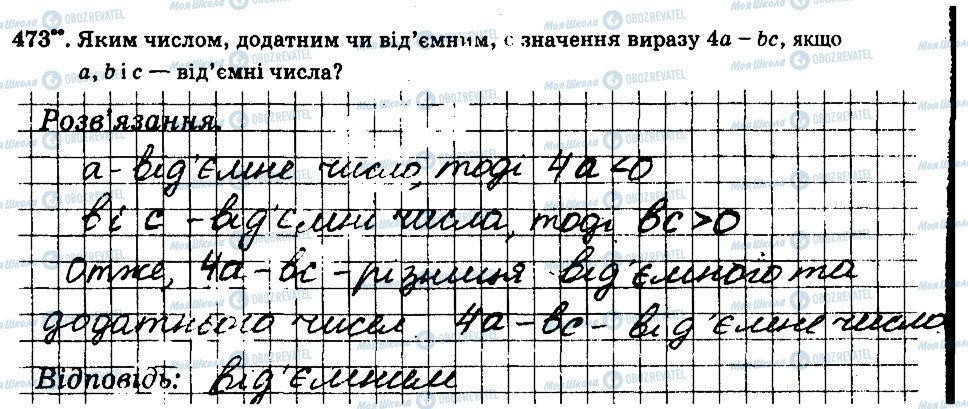 473••. Яким числом, додатним чи від'ємним, є значення виразу 4a – bc, якщо
a, b і c — від'ємні числа?
Розв'язання.
а - від'ємне число, тоді 4а < 0
в і с - від'ємні числа, тоді вс > 0
Отже, 4а - вс - різниця від'ємного та
додатнього чисел 4а - вс - від'ємне число
Відповідь: від'ємним